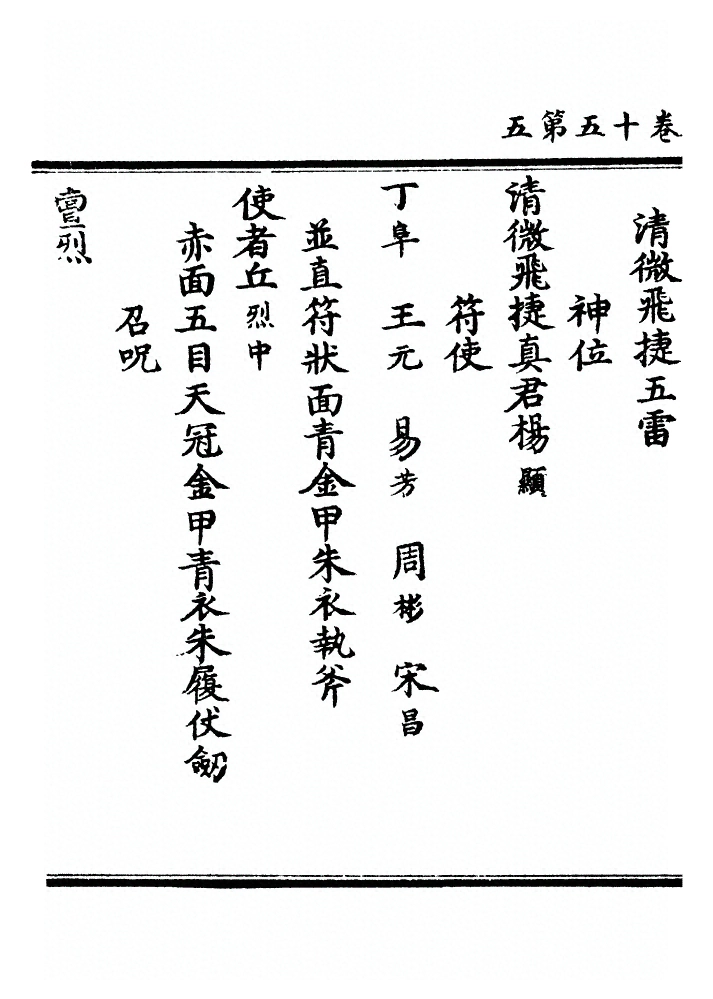 卷十五第五
清微飛捷五雷
神位
清微飛捷真君楊顯
符使
丁阜 王元 易芳 周彬 宋昌
並直符狀面青金甲朱衣執斧
使者丘烈中
赤面五目天冠金甲青衣朱履伏劒
召呪
烈